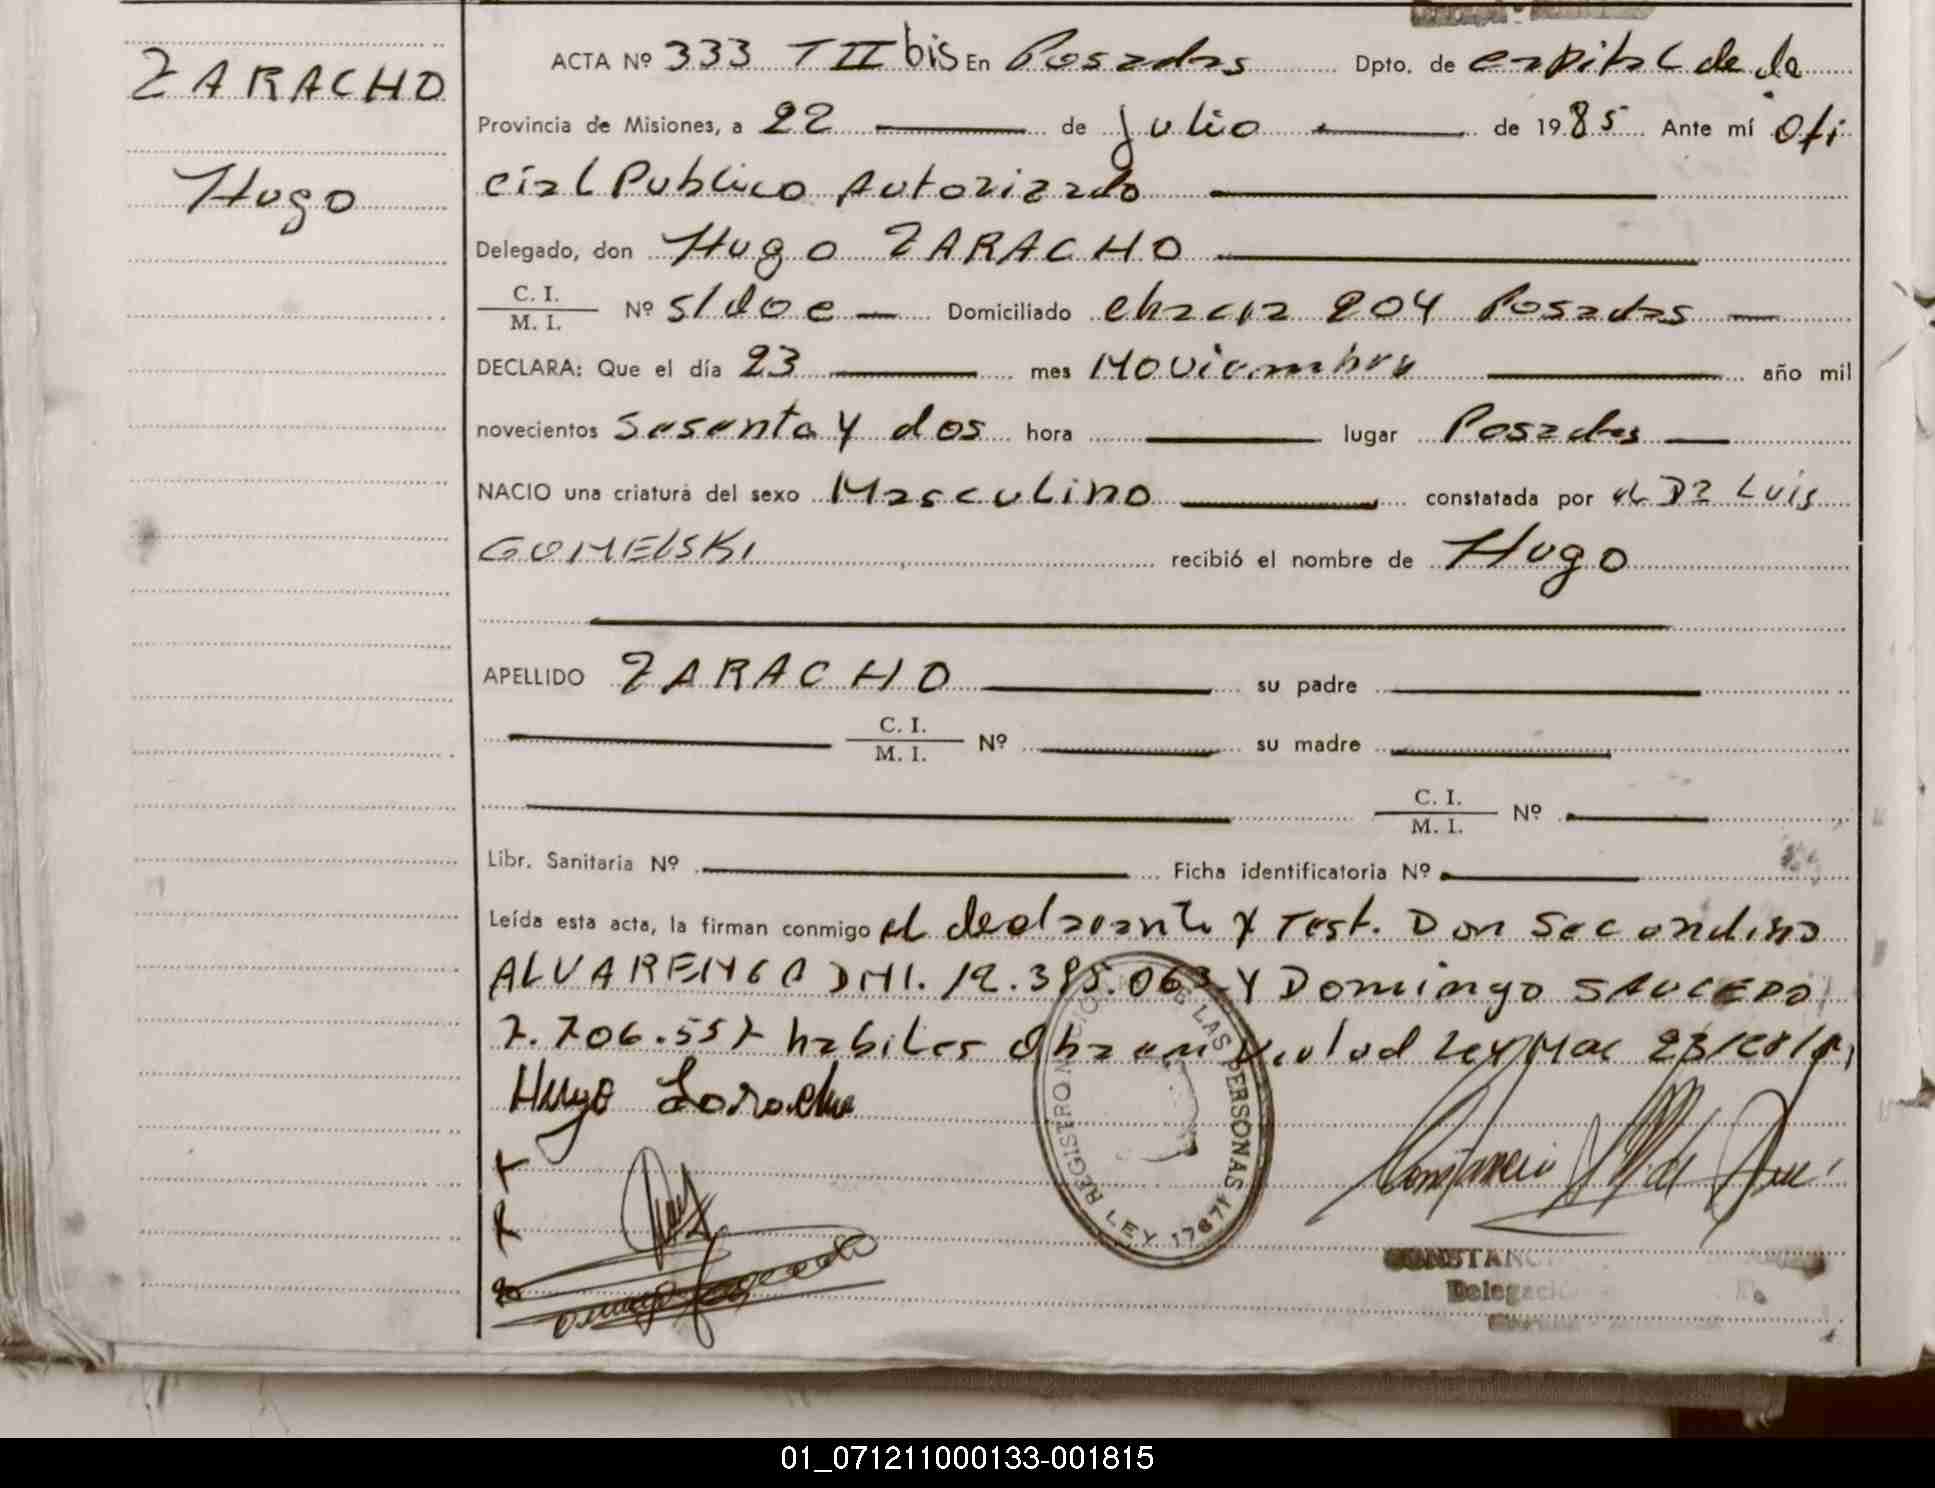 ZARACHO
Hugo
ACTA Nº 333 T II bis En Posadas Dpto. de capital de la
Provincia de Misiones, a 22 de julio de 1985 Ante mí Ofi
cial Publico Autorizado
Delegado, don Hugo ZARACHO
C. I.
M. I. Nº s/doc Domiciliado chacra 204 Posadas
DECLARA: Que el día 23 mes Noviembre año mil
novecientos sesenta y dos hora lugar Posadas
NACIO una criatura del sexo Masculino constatada por el Dr Luis
GOMELSKI recibió el nombre de Hugo
APELLIDO ZARACHO su padre
C. I.
M. I. Nº su madre
C. I.
M. I. Nº
Libr. Sanitaria Nº Ficha identificatoria Nº
Leída esta acta, la firman conmigo el declarante y Test. Don Secundino
ALVARENGA DNI. 12.385.063 Y Domingo SAUCEDO
7.706.557 habiles Ley Nac
Hugo Zaracho
REGISTRO NACIONAL DE LAS PERSONAS
LEY 17671
CONSTANC
Delegaci
01_071211000133-001815